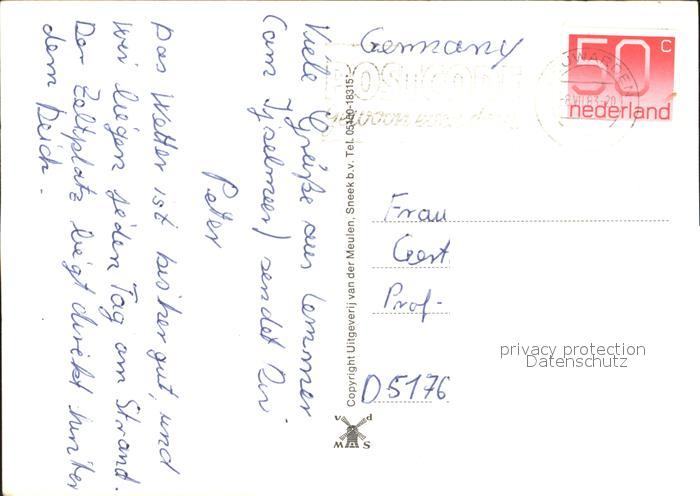 Germany
50 c
nederland
POSTCODE
8.VII.83-20
Viele Grüße aus Lemmer
(am Ijselmeer) sendet Dir
Peter
Das Wetter ist bisher gut, und
wir liegen jeden Tag am Strand.
Der Zeltplatz liegt direkt hinter
dem Deich.
Copyright Uitgeverij van der Meulen, Sneek b.v. Tel. 05150-18315*
Frau
Gert
Prof-
D 5176
privacy protection
Datenschutz
v d
MAS